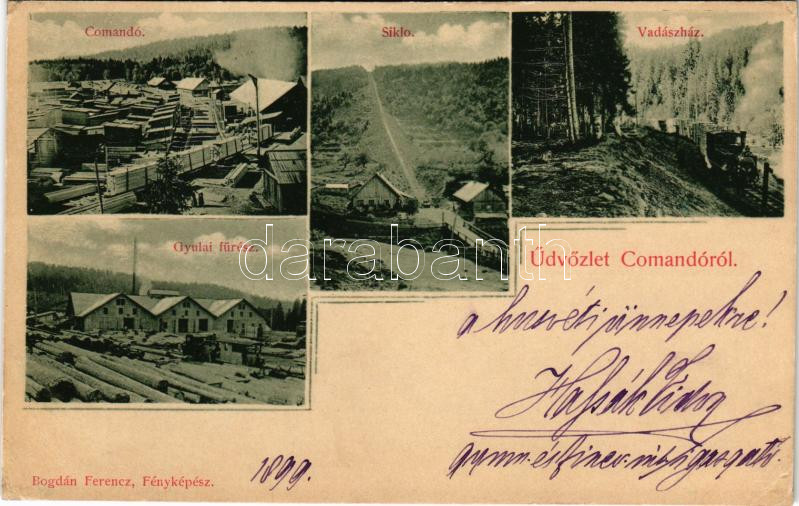 Comandó.
Siklo.
Vadászház.
Gyulai fűrész.
darabanth.com
Űdvőzlet Comandóról.
a husvéti ünnepekre!
1899.
Bogdán Ferencz, Fényképész.